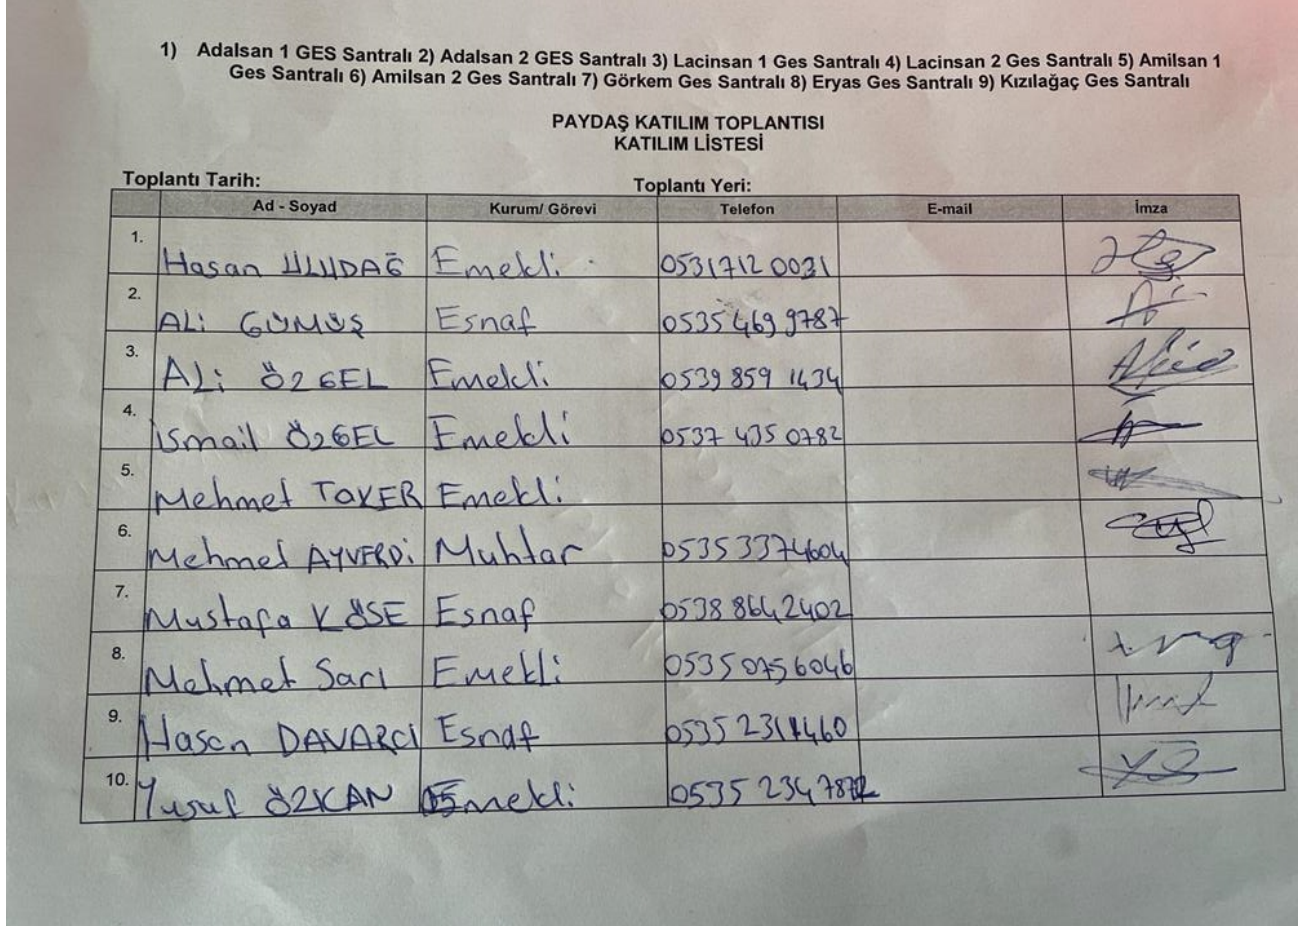 1) Adalsan 1 GES Santralı 2) Adalsan 2 GES Santralı 3) Lacinsan 1 Ges Santralı 4) Lacinsan 2 Ges Santralı 5) Amilsan 1
Ges Santralı 6) Amilsan 2 Ges Santralı 7) Görkem Ges Santralı 8) Eryas Ges Santralı 9) Kızılağaç Ges Santralı
PAYDAŞ KATILIM TOPLANTISI
KATILIM LİSTESİ
Toplantı Tarih: Toplantı Yeri:
Ad - Soyad Kurum/ Görevi Telefon E-mail İmza
1. Hasan ULUDAĞ Emekli 05317120031
2. ALİ GÜMÜŞ Esnaf 0535 469 9787
3. ALİ ÖZGEL Emekli 0539 859 1434
4. İsmail ÖZGEL Emekli 0537 435 0782
5. Mehmet TOKER Emekli
6. Mehmet AYVERDİ Muhtar 05353374604
7. Mustafa KÖSE Esnaf 0538 8642402
8. Mehmet Sarı Emekli 05350756046
9. Hasan DAVARCI Esnaf
10. Yusuf ÖZKAN Emekli